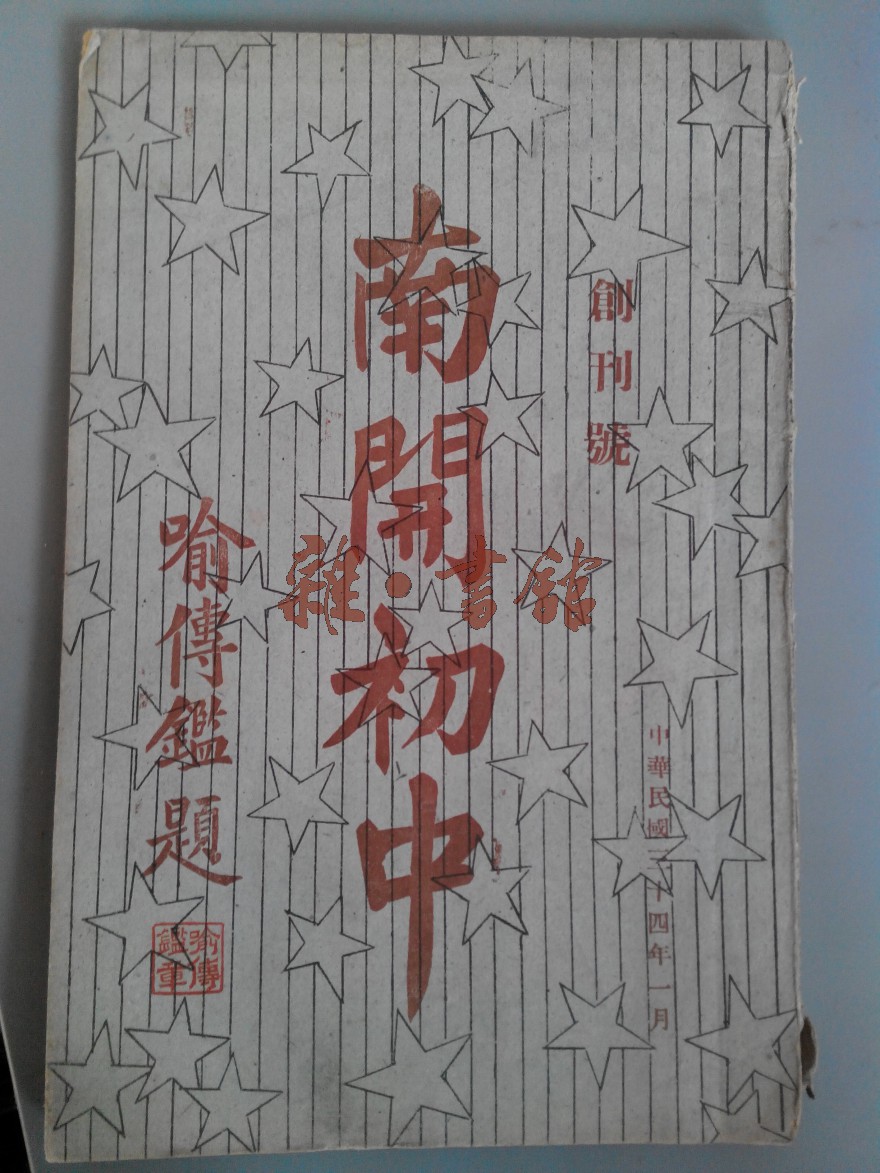 創刊號
中華民國二十四年一月
南開初中
喻傳鑑題
喻傳
鑑章
雜·書館